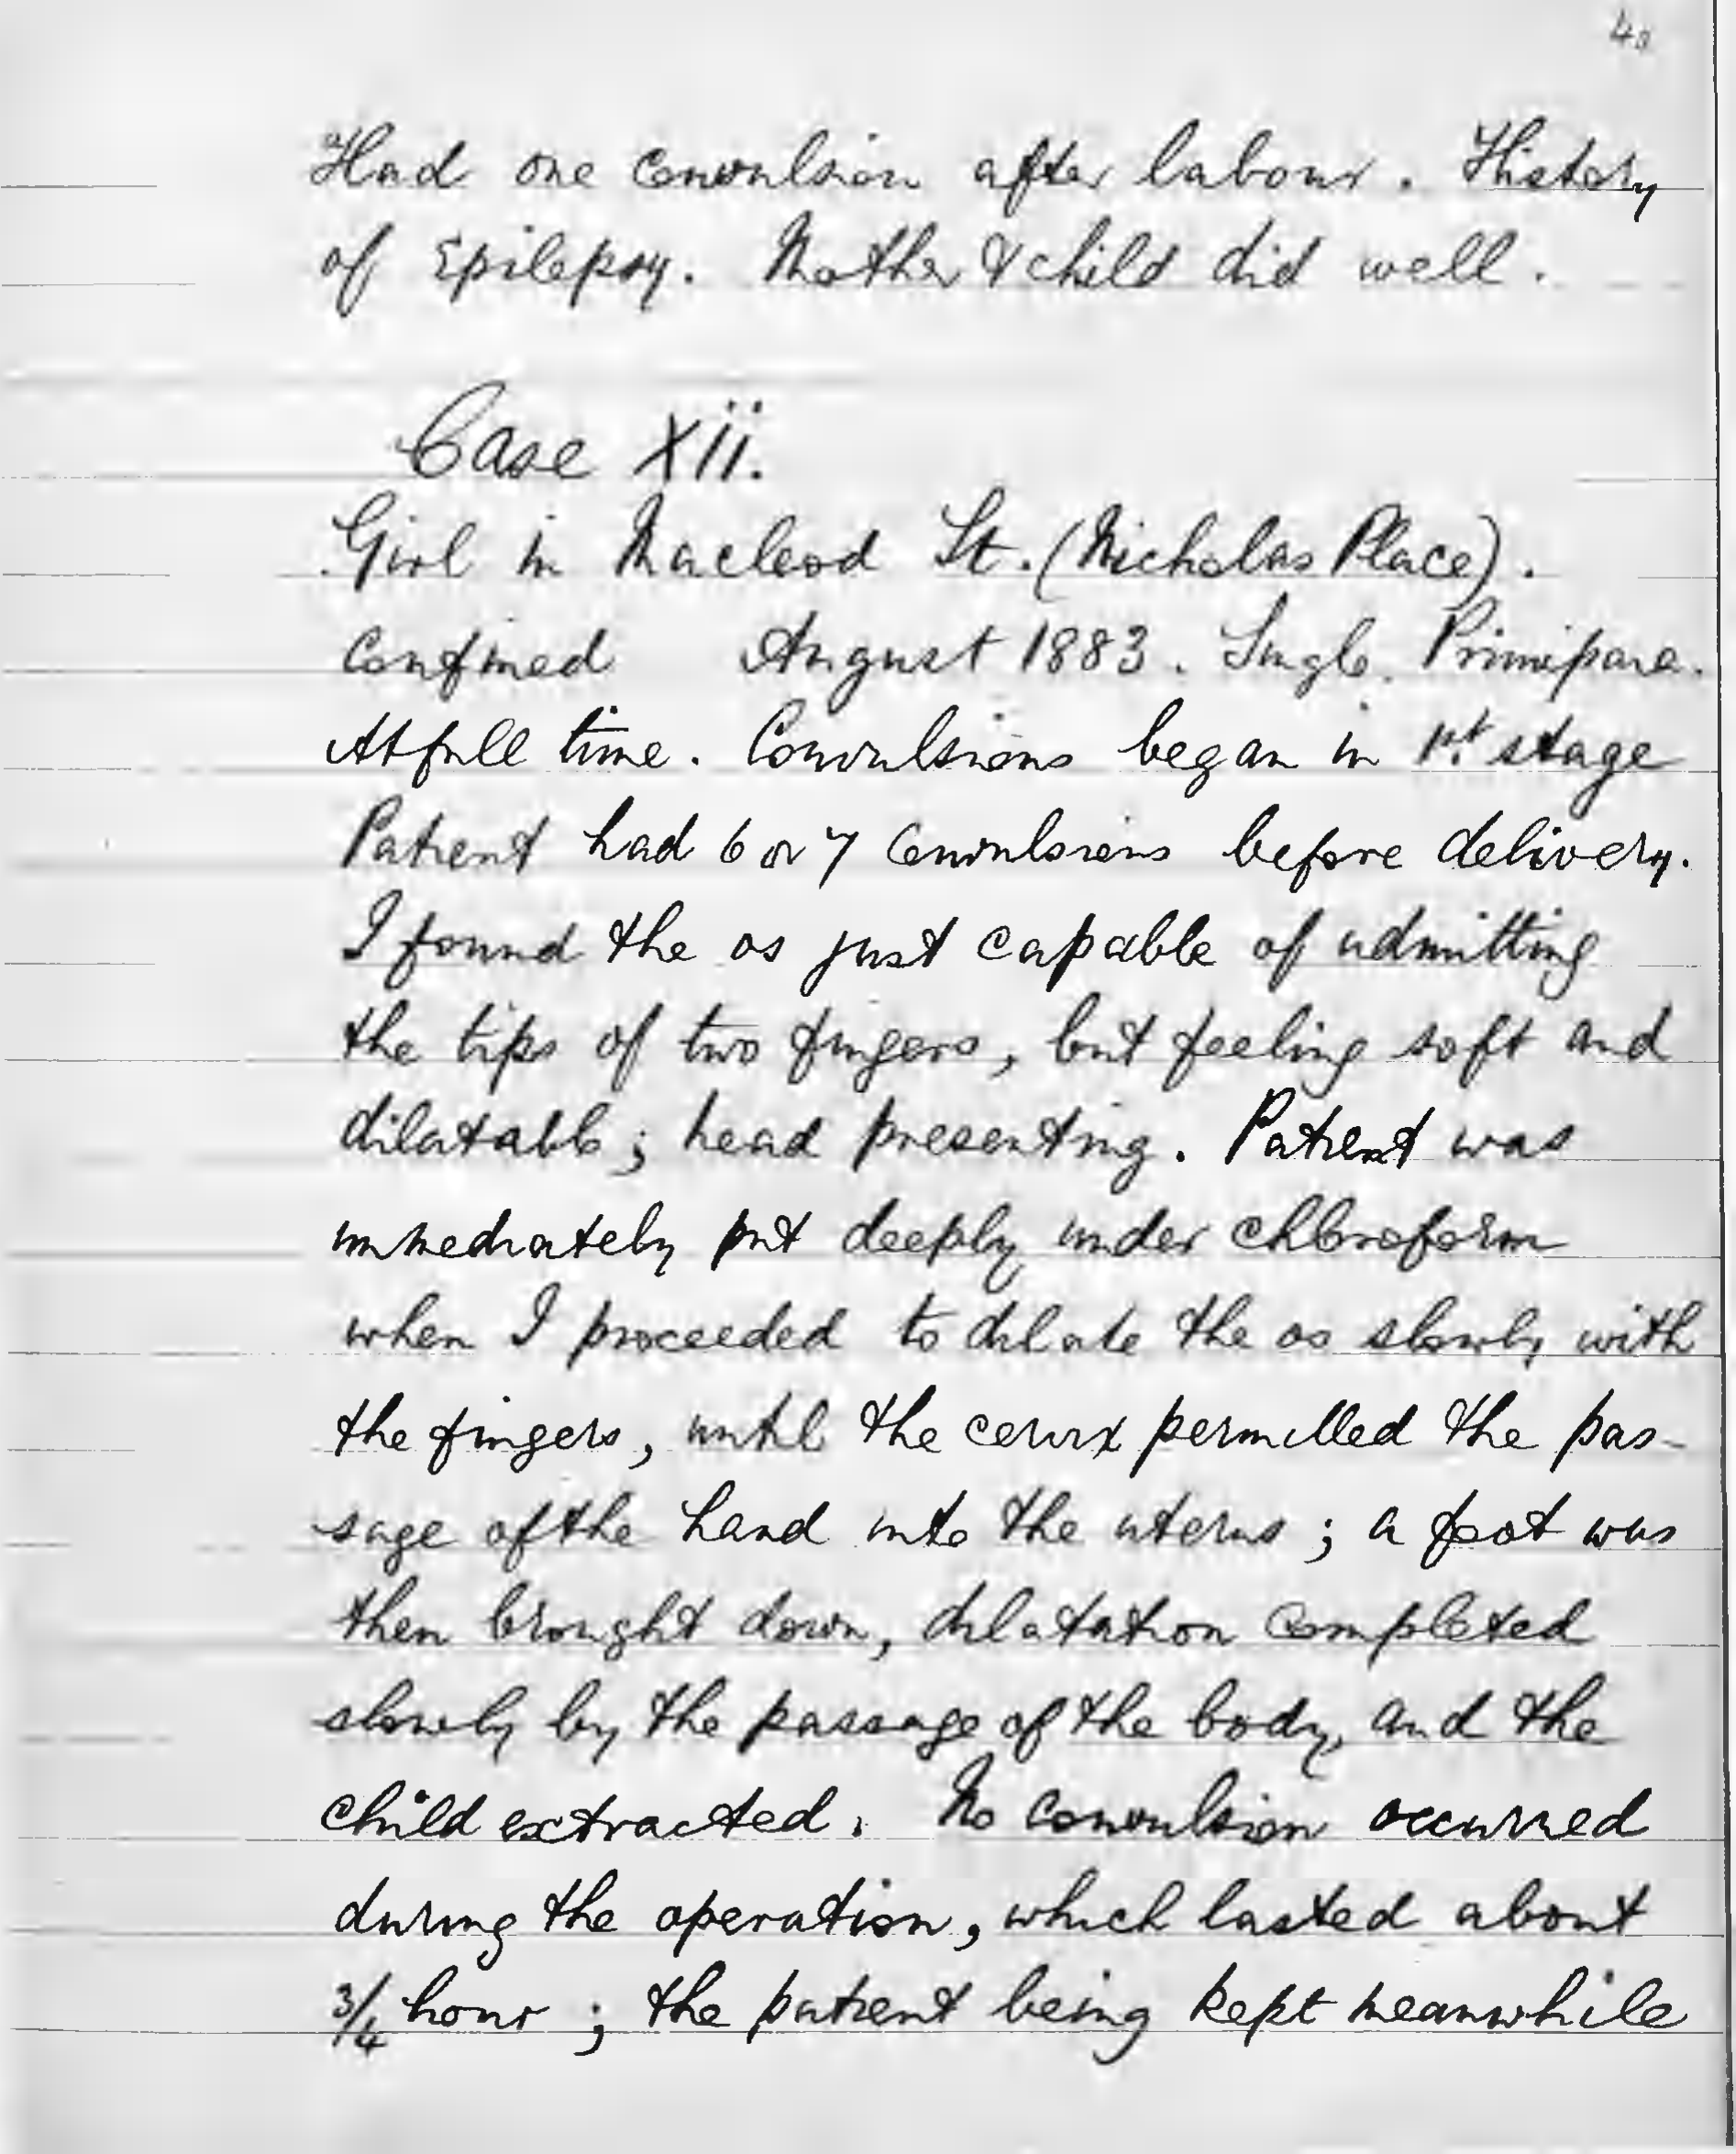 Had one convulsion after labour. History
of Epilepsy. Mother & child did well.
Case Xii.
Girl in Macleod St. (Nicholas Place).
Confined August 1883. Single. Primipara.
At full time. Convulsions began in 1st stage
Patient had 6 or 7 Convulsions before delivery.
I found the os just capable of admitting
the tips of two fingers, but feeling soft and
dilatable; head presenting. Patient was
immediately put deeply under chloroform
when I proceeded to dilate the os slowly with
the fingers, until the cervix permitted the pas-
sage of the hand into the uterus; a foot was
then brought down, dilatation completed
slowly by the passage of the body, and the
child extracted. No convulsion occurred
during the operation, which lasted about
3/4 hour; the patient being kept meanwhile